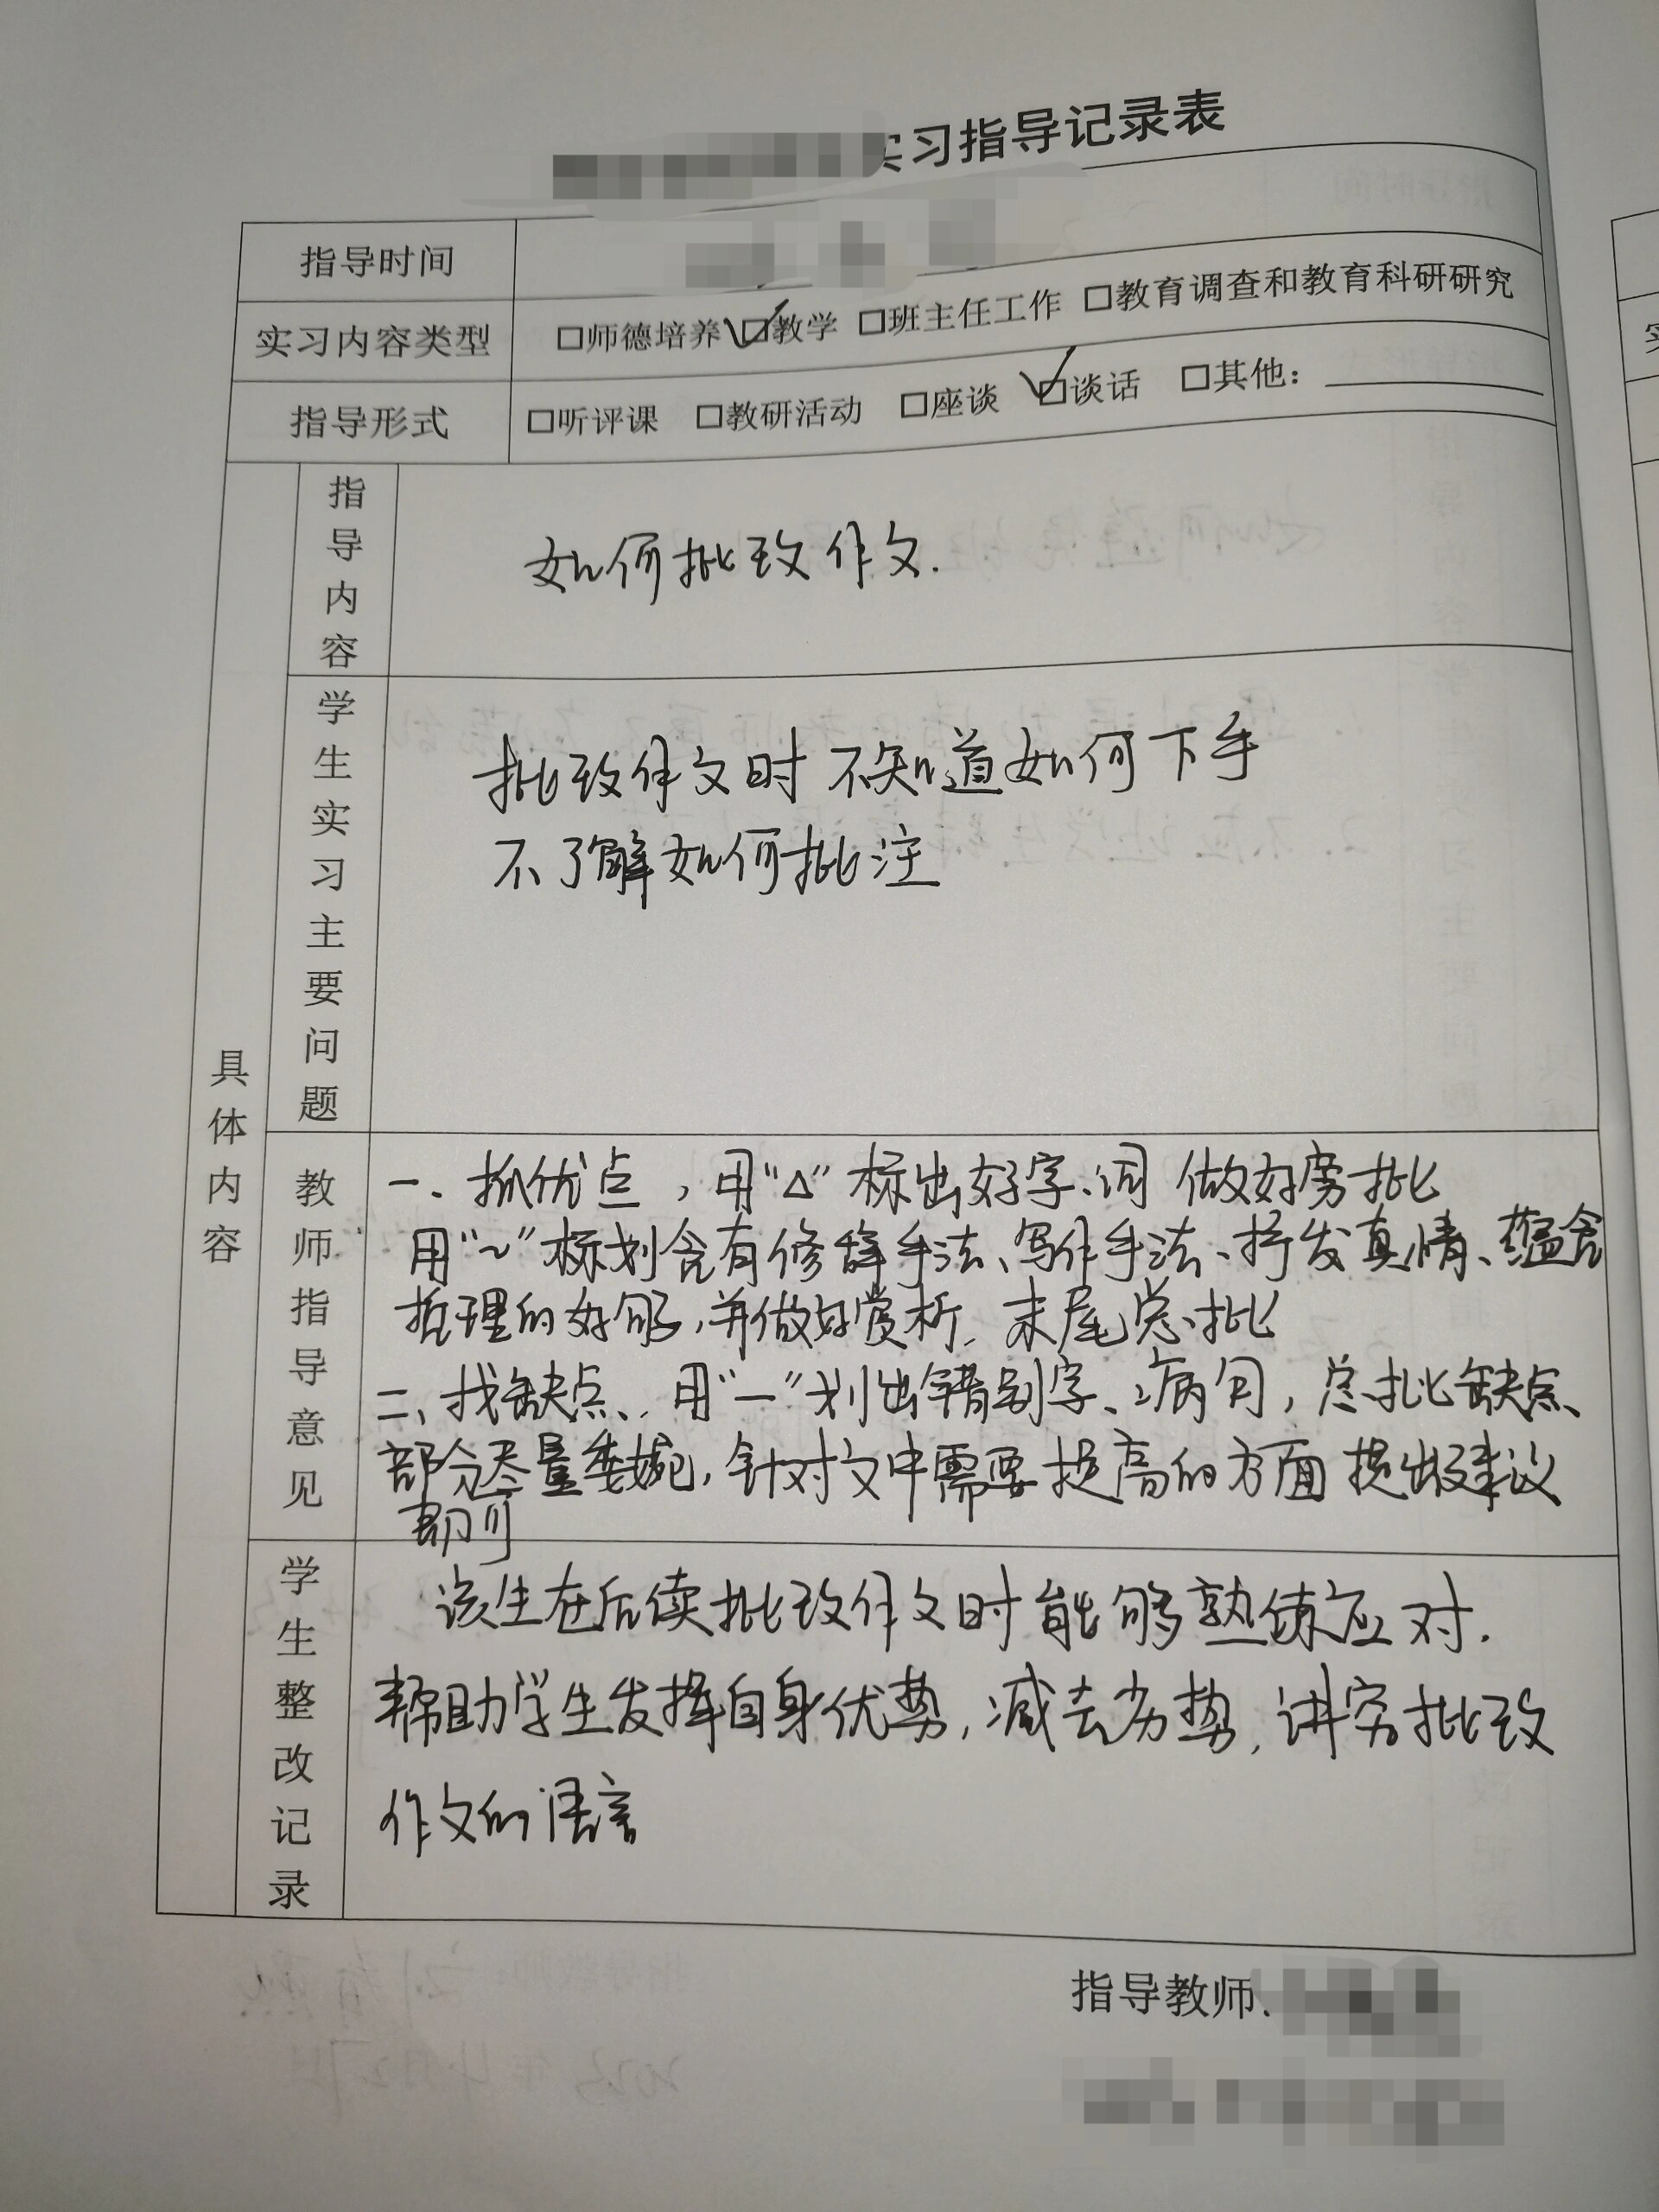 实习指导记录表
指导时间
实习内容类型 □师德培养 ☑教学 □班主任工作 □教育调查和教育科研研究
指导形式 □听评课 □教研活动 □座谈 ☑谈话 □其他：
具体内容
指导内容
如何批改作文.
学生实习主要问题
批改作文时不知道如何下手
不了解如何批注
教师指导意见
一、抓优点，用“△”标出好字、词 做好旁批
用“~”标划含有修辞手法、写作手法、抒发真情、蕴含
哲理的好句，并做好赏析，末尾总批
二、找缺点、，用“—”划出错别字、病句，总批缺点、
部分尽量委婉，针对文中需要提高的方面提出建议
即可
学生整改记录
该生在后续批改作文时能够熟练应对.
帮助学生发挥自身优势，减去劣势，讲究批改
作文的语言
指导教师